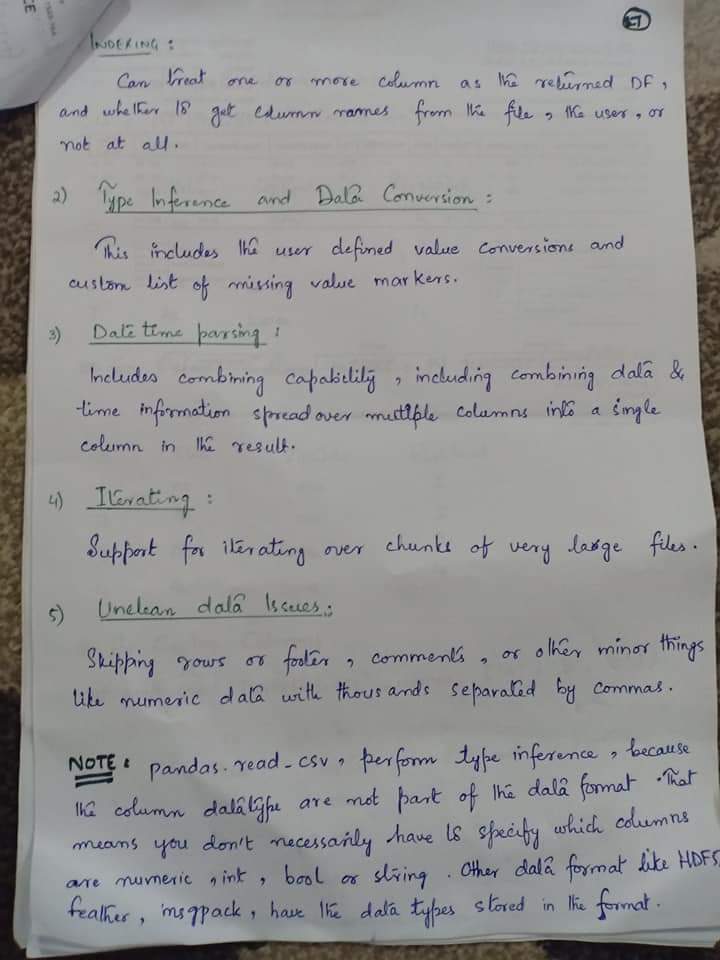 7
INDEXING :
Can treat one or more column as the returned DF,
and whether to get column names from the file, the user, or
not at all.
2) Type Inference and Data Conversion :
This includes the user defined value conversions and
custom list of missing value markers.
3) Date time parsing :
Includes combining capability, including combining data &
time information spread over multiple columns into a single
column in the result.
4) Iterating :
Support for iterating over chunks of very large files.
5) Unclean data Issues :
Skipping rows or footer, comments, or other minor things
like numeric data with thousands separated by commas.
NOTE : pandas.read_csv, perform type inference, because
the column datatype are not part of the data format. That
means you don't necessarily have to specify which columns
are numeric, int, bool or string. Other data format like HDFS,
feather, msgpack, have the data types stored in the format.